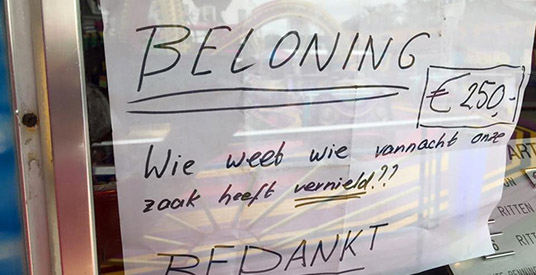 BELONING
€ 250,-
Wie weet wie vannacht onze
zaak heeft vernield??
BEDANKT
ART
RITTEN
RITTEN